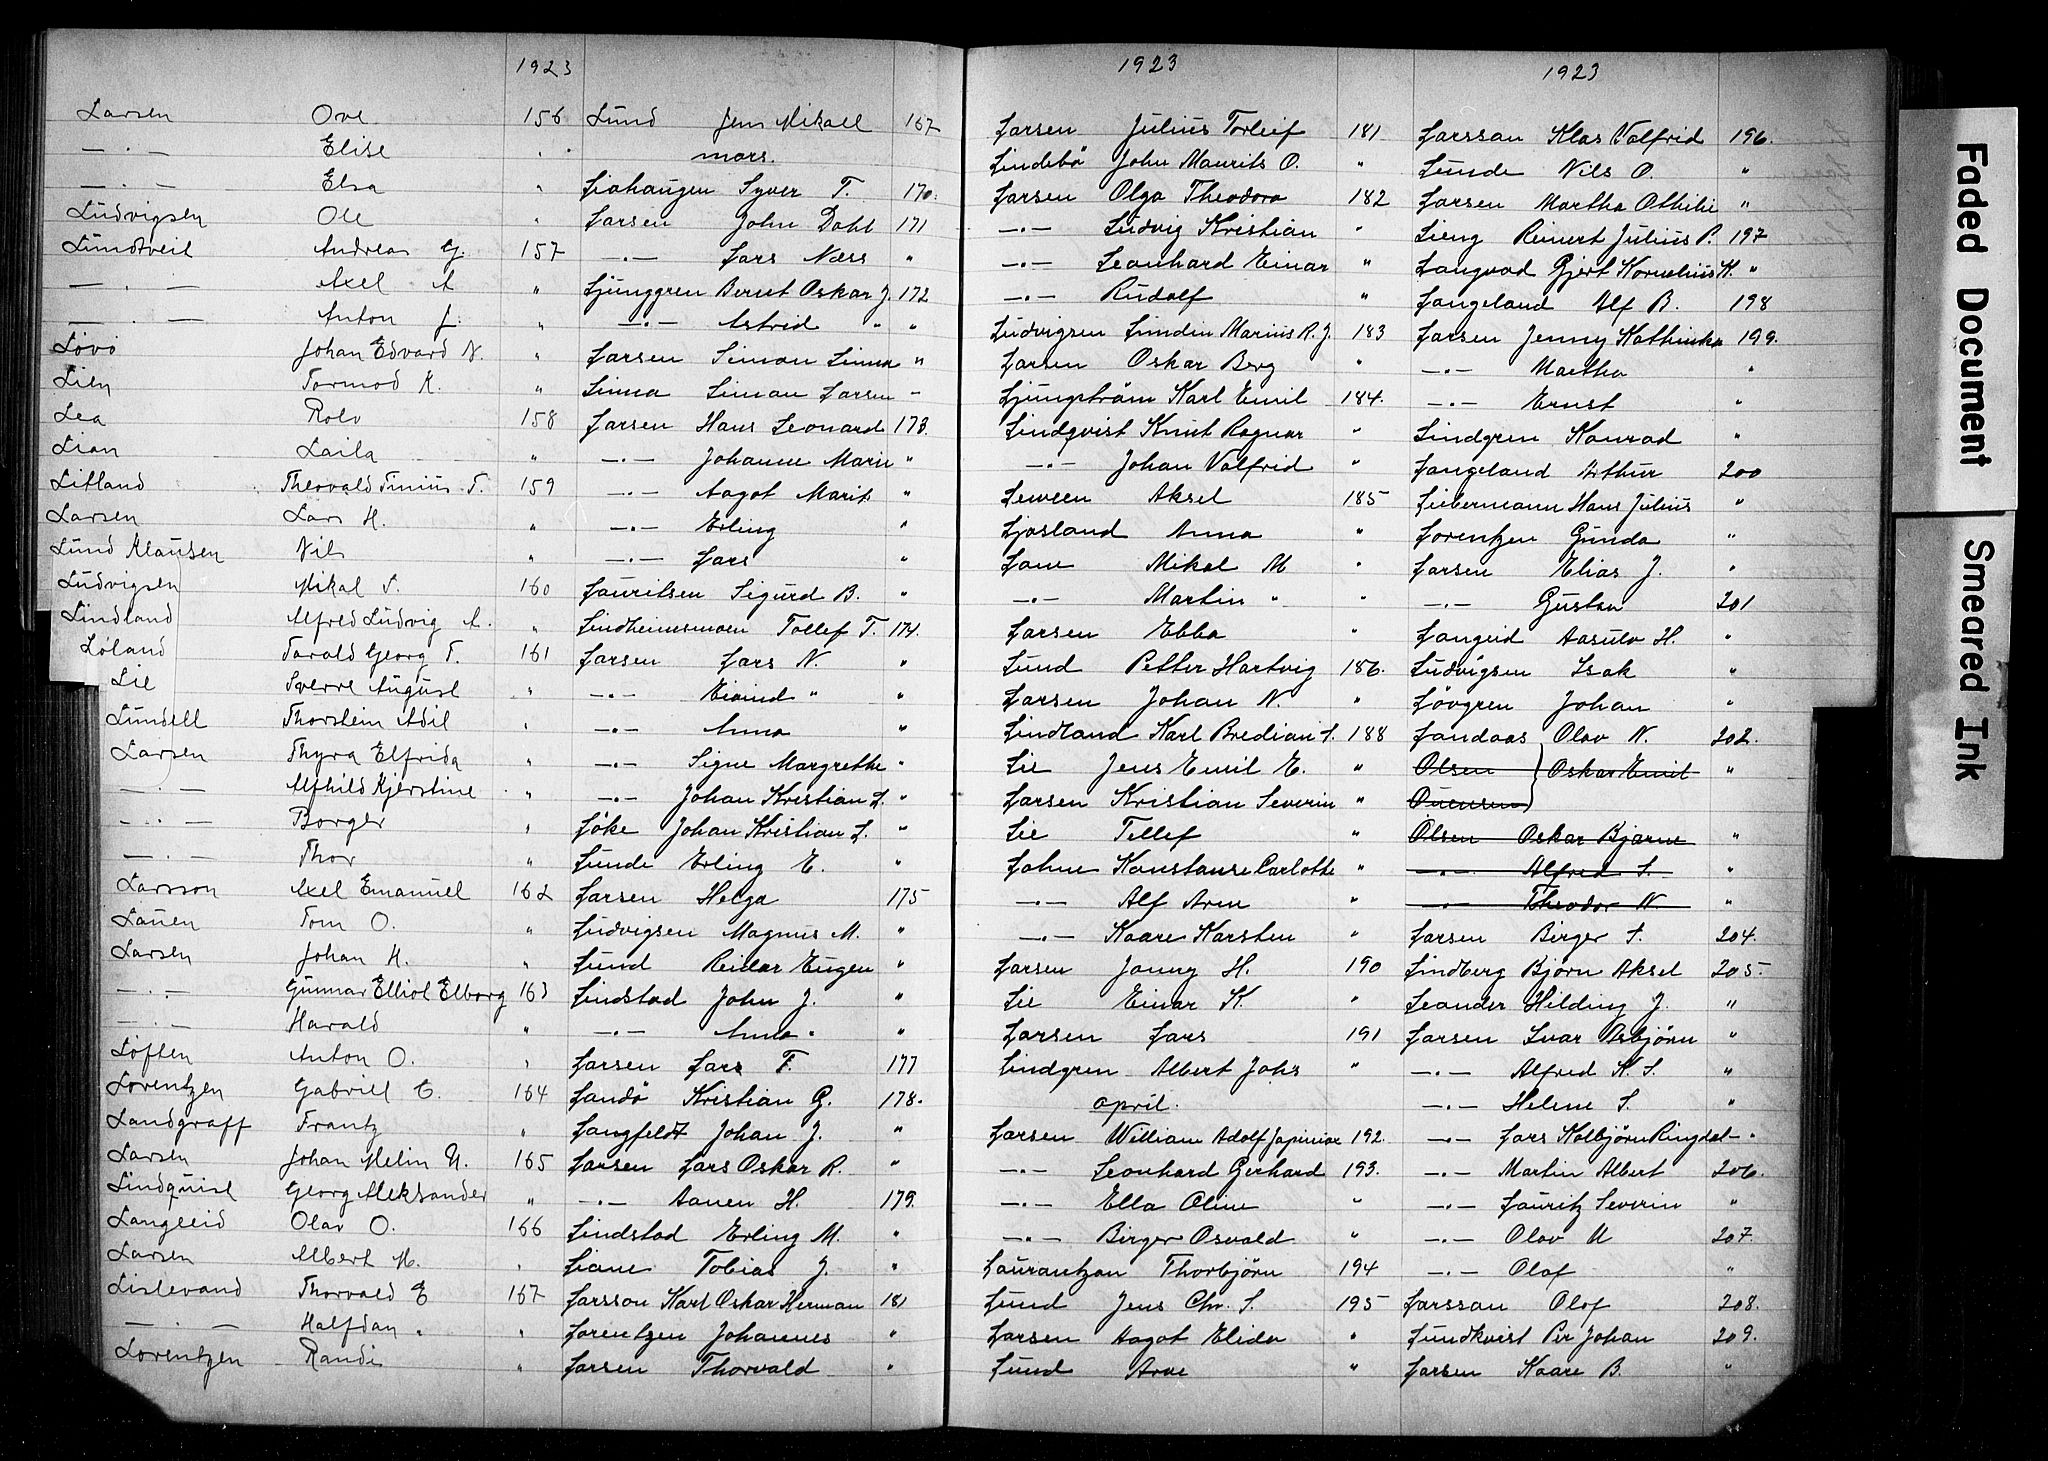 1923
Larsen Ove 156
—·— Elise "
—·— Elsa "
Ludvigsen Ole "
Lundtveit Andreas G. 157
—·— Axel A "
—·— Anton J. "
Lövö Johan Edvard N. "
Lien Tormod K. "
Lea Rolv 158
Lian Laila "
Litland Theovald Tinius T. 159
Larsen Lars H. "
Lund Klausen Nils "
Ludvigsen Mikal S. 160
Lindland Alfred Ludvig A. "
Löland Torald Georg T. 161
Lie Sverre August "
Lundell Thorstein Adil "
Larsen Thyra Elfrida "
—·— Alfhild Kjerstine "
—·— Borger "
—·— Thor "
Larsson Axel Emanuel 162
Lauen Tom O. "
Larsen Johan H. "
—·— Gunnar Elliot Elborg 163
—·— Harald "
Löften Anton O. "
Lorentzen Gabriel C. 164
Landgraff Frantz "
Larsen Johan Melin N. 165
Lindquist Georg Aleksander "
Langeid Olav O. 166
Larsen Albert M. "
Listevand Thorvald E 167
—·— Halfdan " "
Lorentzen Randi "
Lund Jens Mikael 167
mars.
Liahaugen Syver T. 170.
Larsen John Dahl 171
—·— Lars Næss "
Ljunggren Bernt Oskar J. 172
—·— Astrid " "
Larsen Simon Linna "
Linna Simon Larsen "
Larsen Hans Leonard 173.
—·— Johanne Marie "
—·— Aagot Marit "
—·— Erling "
—·— Lars "
Lauritsen Sigurd B. "
Lindheimsmoen Tollef T. 174.
Larsen Lars N. "
—·— Eivind " "
—·— Anna "
—·— Signe Margrethe "
—·— Johan Kristian L. "
Löke Johan Kristian L. "
Lunde Erling E. "
Larsen Helga 175
Ludvigsen Magnus M. "
Lund Reidar Eugen "
Lindstad John J. "
—·— Anna " "
Larsen Lars F. 177
Landö Kristian G. 178.
Langfeldt Johan J. "
Larsen Lars Oskar R. "
—·— Aanen H. 179.
Lindstad Erling M. "
Liane Tobias J. "
Larsson Karl Oskar Herman 181
Lorentzen Johannes "
Larsen Thorvald "
1923
Larsen Julius Torleif 181
Lindebö John Maurits O. "
Larsen Olga Theodora 182
—·— Ludvig Kristian "
—·— Leonhard Einar "
—·— Rudolf "
Ludvigsen Lindin Marius R. J. 183
Larsen Oskar Berg "
Ljungström Karl Emil 184.
Lindqvist Knut Ragnar "
—·— Johan Valfrid "
Leween Aksel 185
Ljosland Anna "
Lane Mikal M "
—·— Martin " "
Larsen Ebba "
Lund Petter Hartvig 186.
Larsen Johan N. "
Lindland Karl Bredian S. 188
Lie Jens Emil E. "
Larsen Kristian Severin "
Lie Tellef "
Lohne Konstanse Carlotte "
—·— Alf Arne "
—·— Kaare Karsten "
Larsen Jonny H. 190
Lie Einar K. "
Larsen Lars 191
Lindgren Albert Johs "
april.
Larsen William Adolf 192.
—·— Leonhard Gerhard 193.
—·— Ella Oline "
—·— Birger Osvald "
Laurantzon Thorbjörn 194
Lund Jens Chr. S. 195
Larsen Aagot Elida "
Lund Arne "
1923
Larsson Klas Valfrid 196.
Lunde Nils O. "
Larsen Martha Othilie "
Lieng Reinert Julius P. 197
Langvad Gjert Kornelius K. "
Langeland Alf B. 198
Larsen Jenny Kathinka 199.
—·— Martha "
—·— Ernst "
Lindgren Konrad "
Langeland Arthur 200
Liebermann Hans Julius "
Lorentzen Gunda "
Larsen Elias J. "
—·— Gustav 201
Langeid Aasulv H. "
Ludvigsen Isak "
Lövgren Johan "
Landaas Olav N. 202.
Olsen } Oskar Emil "
Ouensen
Olsen Oskar Bjarne "
—·— Alfred S. "
—·— Theodor N. "
Larsen Birger S. 204.
Lindberg Björn Aksel 205.
Leander Hilding J. "
Larsen Ivar Osbjörn "
—·— Alfred K. S. "
—·— Helene S. "
—·— Lars Kolbjörn Ringdal "
—·— Martin Albert 206.
—·— Lauritz Severin "
—·— Olav U 207.
—·— Olaf "
Larsson Olof 208.
Lundkvist Per Johan 209.
Larsen Kaare B. "
Faded Document
Smeared Ink